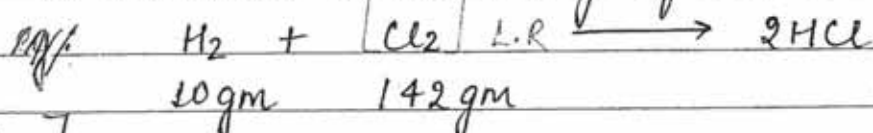 eg/. H₂ + [Cl₂] L.R ⟶ 2HCl
10 gm 142 gm